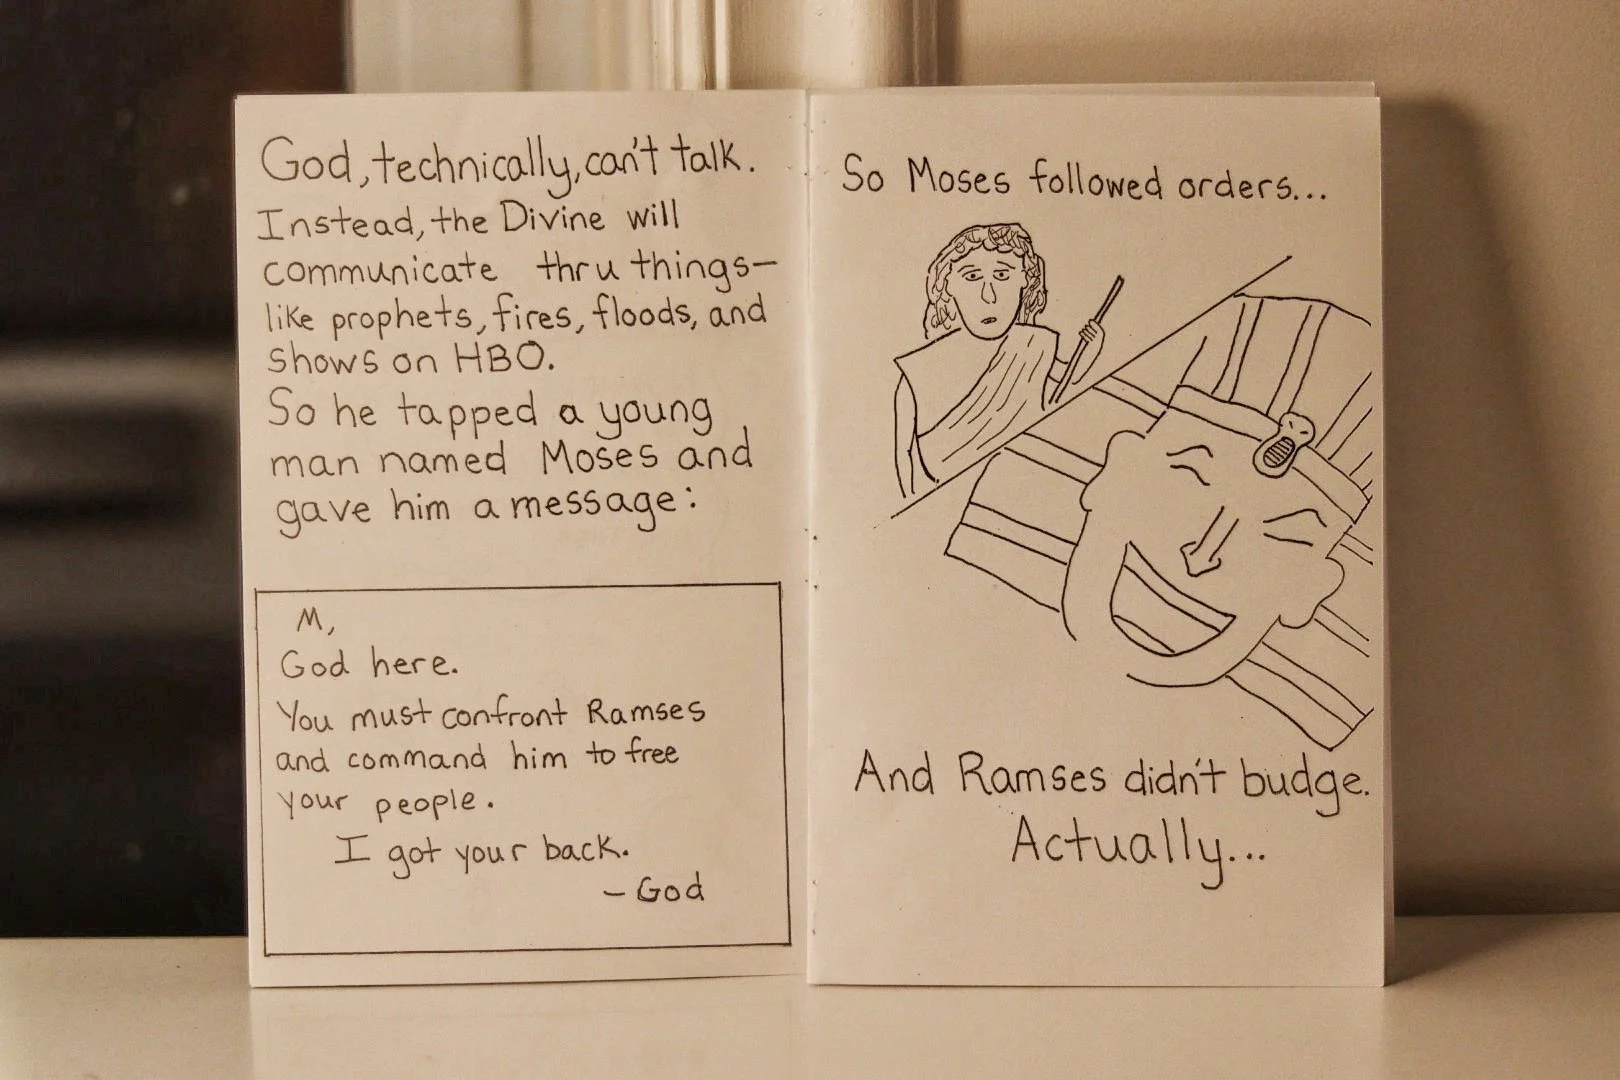 God, technically, can't talk.
Instead, the Divine will
communicate thru things—
like prophets, fires, floods, and
shows on HBO.
So he tapped a young
man named Moses and
gave him a message:
M,
God here.
You must confront Ramses
and command him to free
your people.
I got your back.
– God
So Moses followed orders...
And Ramses didn't budge.
Actually...